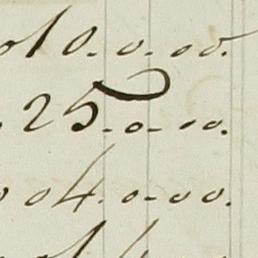 010.0.00.
.25.0.00.
004.0-00.